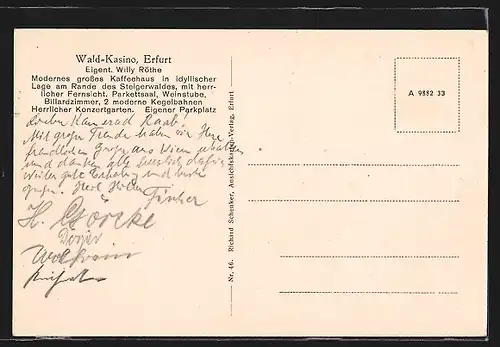 Wald-Kasino, Erfurt
Eigent. Willy Röthe
Modernes großes Kaffeehaus in idyllischer
Lage am Rande des Steigerwaldes, mit herr-
licher Fernsicht. Parkettsaal, Weinstube,
Billardzimmer, 2 moderne Kegelbahnen
Herrlicher Konzertgarten. Eigener Parkplatz
Lieber Kamerad Raab!
Mit großer Freude haben wir Ihre
freundlichen Grüße aus Wien erhalten
und danken alle herzlich dafür
weiter gute Erholung und
H. Görcke
Nr. 46. Richard Schenker, Ansichtskarten-Verlag, Erfurt
A 9882 33